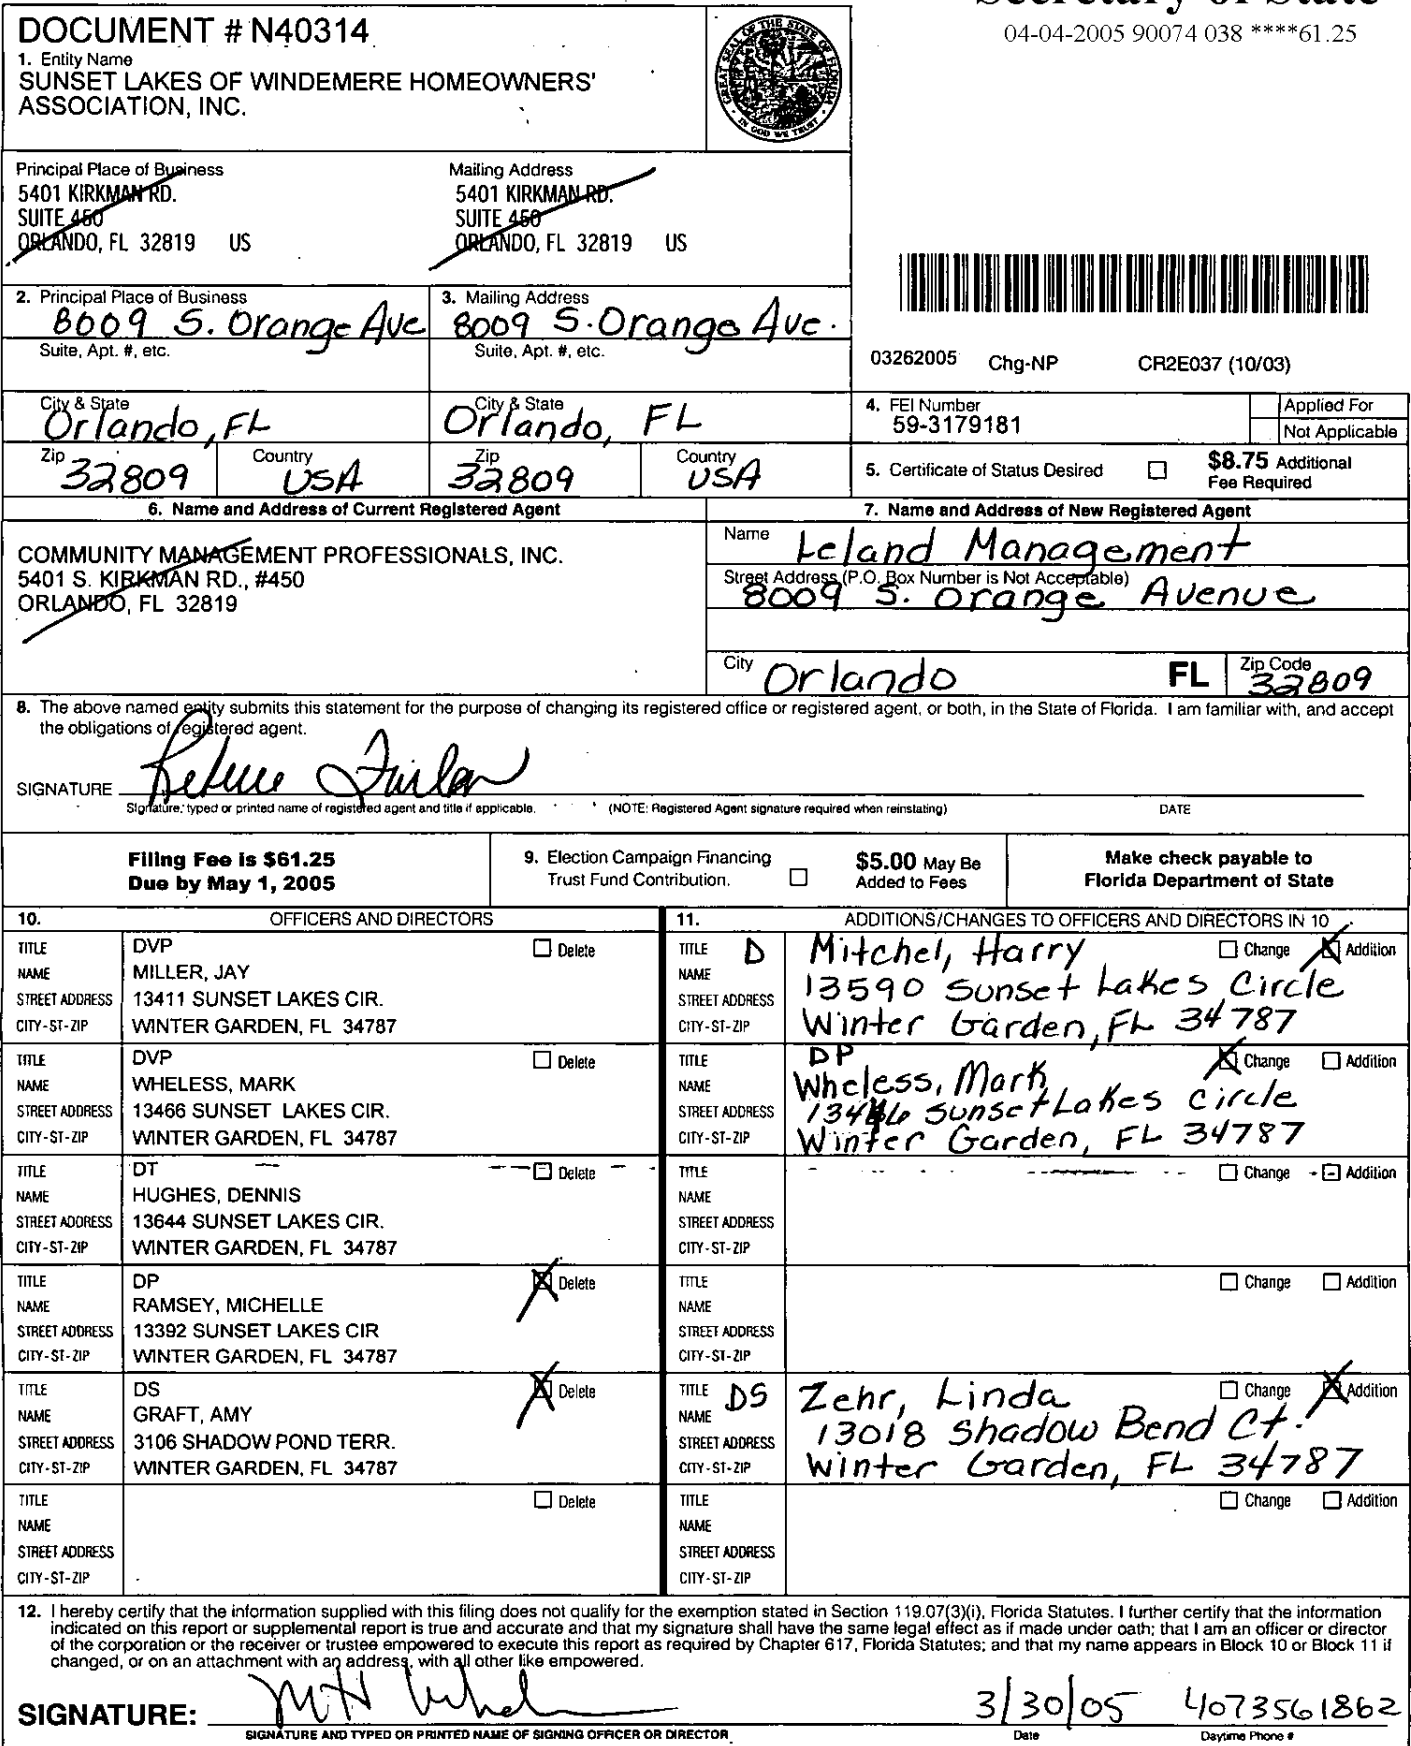 Secretary of State
04-04-2005 90074 038 ****61.25
DOCUMENT # N40314
1. Entity Name
SUNSET LAKES OF WINDEMERE HOMEOWNERS'
ASSOCIATION, INC.
GREAT SEAL OF THE STATE OF FLORIDA
IN GOD WE TRUST
Principal Place of Business
5401 KIRKMAN RD.
SUITE 450
ORLANDO, FL 32819 US
Mailing Address
5401 KIRKMAN RD.
SUITE 450
ORLANDO, FL 32819 US
2. Principal Place of Business
8009 S. Orange Ave
Suite, Apt. #, etc.
3. Mailing Address
8009 S. Orange Ave.
Suite, Apt. #, etc.
03262005 Chg-NP CR2E037 (10/03)
City & State
Orlando, FL
City & State
Orlando, FL
Zip 32809
Country USA
Zip 32809
Country USA
4. FEI Number
59-3179181
Applied For
Not Applicable
5. Certificate of Status Desired
$8.75 Additional
Fee Required
6. Name and Address of Current Registered Agent
COMMUNITY MANAGEMENT PROFESSIONALS, INC.
5401 S. KIRKMAN RD., #450
ORLANDO, FL 32819
7. Name and Address of New Registered Agent
Name Leland Management
Street Address (P.O. Box Number is Not Acceptable)
8009 S. Orange Avenue
City Orlando FL Zip Code 32809
8. The above named entity submits this statement for the purpose of changing its registered office or registered agent, or both, in the State of Florida. I am familiar with, and accept
the obligations of registered agent.
SIGNATURE
Signature, typed or printed name of registered agent and title if applicable. (NOTE: Registered Agent signature required when reinstating) DATE
Filing Fee is $61.25
Due by May 1, 2005
9. Election Campaign Financing
Trust Fund Contribution.
$5.00 May Be
Added to Fees
Make check payable to
Florida Department of State
10. OFFICERS AND DIRECTORS
11. ADDITIONS/CHANGES TO OFFICERS AND DIRECTORS IN 10
TITLE DVP Delete
NAME MILLER, JAY
STREET ADDRESS 13411 SUNSET LAKES CIR.
CITY-ST-ZIP WINTER GARDEN, FL 34787
TITLE D Mitchel, Harry Change Addition
NAME
STREET ADDRESS 13590 Sunset Lakes Circle
CITY-ST-ZIP Winter Garden, FL 34787
TITLE DVP Delete
NAME WHELESS, MARK
STREET ADDRESS 13466 SUNSET LAKES CIR.
CITY-ST-ZIP WINTER GARDEN, FL 34787
TITLE DP Change Addition
NAME Wheless, Mark
STREET ADDRESS 13466 Sunset Lakes Circle
CITY-ST-ZIP Winter Garden, FL 34787
TITLE DT Delete
NAME HUGHES, DENNIS
STREET ADDRESS 13644 SUNSET LAKES CIR.
CITY-ST-ZIP WINTER GARDEN, FL 34787
TITLE Change Addition
NAME
STREET ADDRESS
CITY-ST-ZIP
TITLE DP Delete
NAME RAMSEY, MICHELLE
STREET ADDRESS 13392 SUNSET LAKES CIR
CITY-ST-ZIP WINTER GARDEN, FL 34787
TITLE Change Addition
NAME
STREET ADDRESS
CITY-ST-ZIP
TITLE DS Delete
NAME GRAFT, AMY
STREET ADDRESS 3106 SHADOW POND TERR.
CITY-ST-ZIP WINTER GARDEN, FL 34787
TITLE DS Zehr, Linda Change Addition
NAME
STREET ADDRESS 13018 Shadow Bend Ct.
CITY-ST-ZIP Winter Garden, FL 34787
TITLE Delete
NAME
STREET ADDRESS
CITY-ST-ZIP
TITLE Change Addition
NAME
STREET ADDRESS
CITY-ST-ZIP
12. I hereby certify that the information supplied with this filing does not qualify for the exemption stated in Section 119.07(3)(i), Florida Statutes. I further certify that the information
indicated on this report or supplemental report is true and accurate and that my signature shall have the same legal effect as if made under oath; that I am an officer or director
of the corporation or the receiver or trustee empowered to execute this report as required by Chapter 617, Florida Statutes; and that my name appears in Block 10 or Block 11 if
changed, or on an attachment with an address, with all other like empowered.
SIGNATURE: 3/30/05 4073561862
SIGNATURE AND TYPED OR PRINTED NAME OF SIGNING OFFICER OR DIRECTOR Date Daytime Phone #